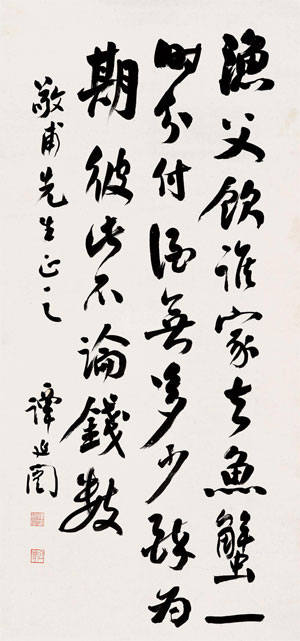 漁父飲誰家去魚蟹一
時分付酒無多少醉為
期彼此不論錢數
敬甫先生正之 譚延闓